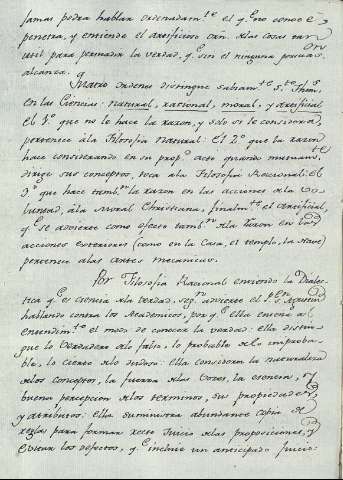 Jamas podra hablar ordenadam.te el q.e no conoce,
penetra, y entiende el artificio con. las cosas tan
util para persuadir la verdad, q.e sin el ninguna persuas.on
alcanza.
Quatro ordenes distingue sabiam.te S.to Thom.s
en las Ciencias natural, racional, moral, y artificial
el 1º que no le hace la razon, y solo si le considera,
pertenece à la Filosofia Natural: el 2º que la razon
hace considerando en su prop.o acto quando
dirige sus conceptos, toca à la Filosofia Racional: el
3º que hace tamb.n la razon en las acciones de la vo-
luntad, à la Moral Christiana, finalm.te el artificial,
q.e se advierte como efecto tamb.n de la razon en las
acciones exteriores (como en la Casa, el templo, la Nave)
pertenece à las artes mecanicas.
Por Filosofia Racional entiendo la Dialec-
tica q.e es ciencia de la verdad, seg.n advierte el P.e S.n Agustin
hablando contra los Academicos, por q.e ella enseña al
entendim.to el modo de conocer la verdad: ella distin-
gue lo verdadero de lo falso, lo probable de lo improba-
ble, lo cierto de lo dudoso: ella considera la naturaleza
de los conceptos, la fuerza de las voces, la esencia, y
buena percepcion de los terminos, sus propiedades,
y atributos: ella suministra abundante copia de
reglas para formar recto juicio de las proposiciones, y
evitar los defectos, y q.e incluie un anticipado juicio: